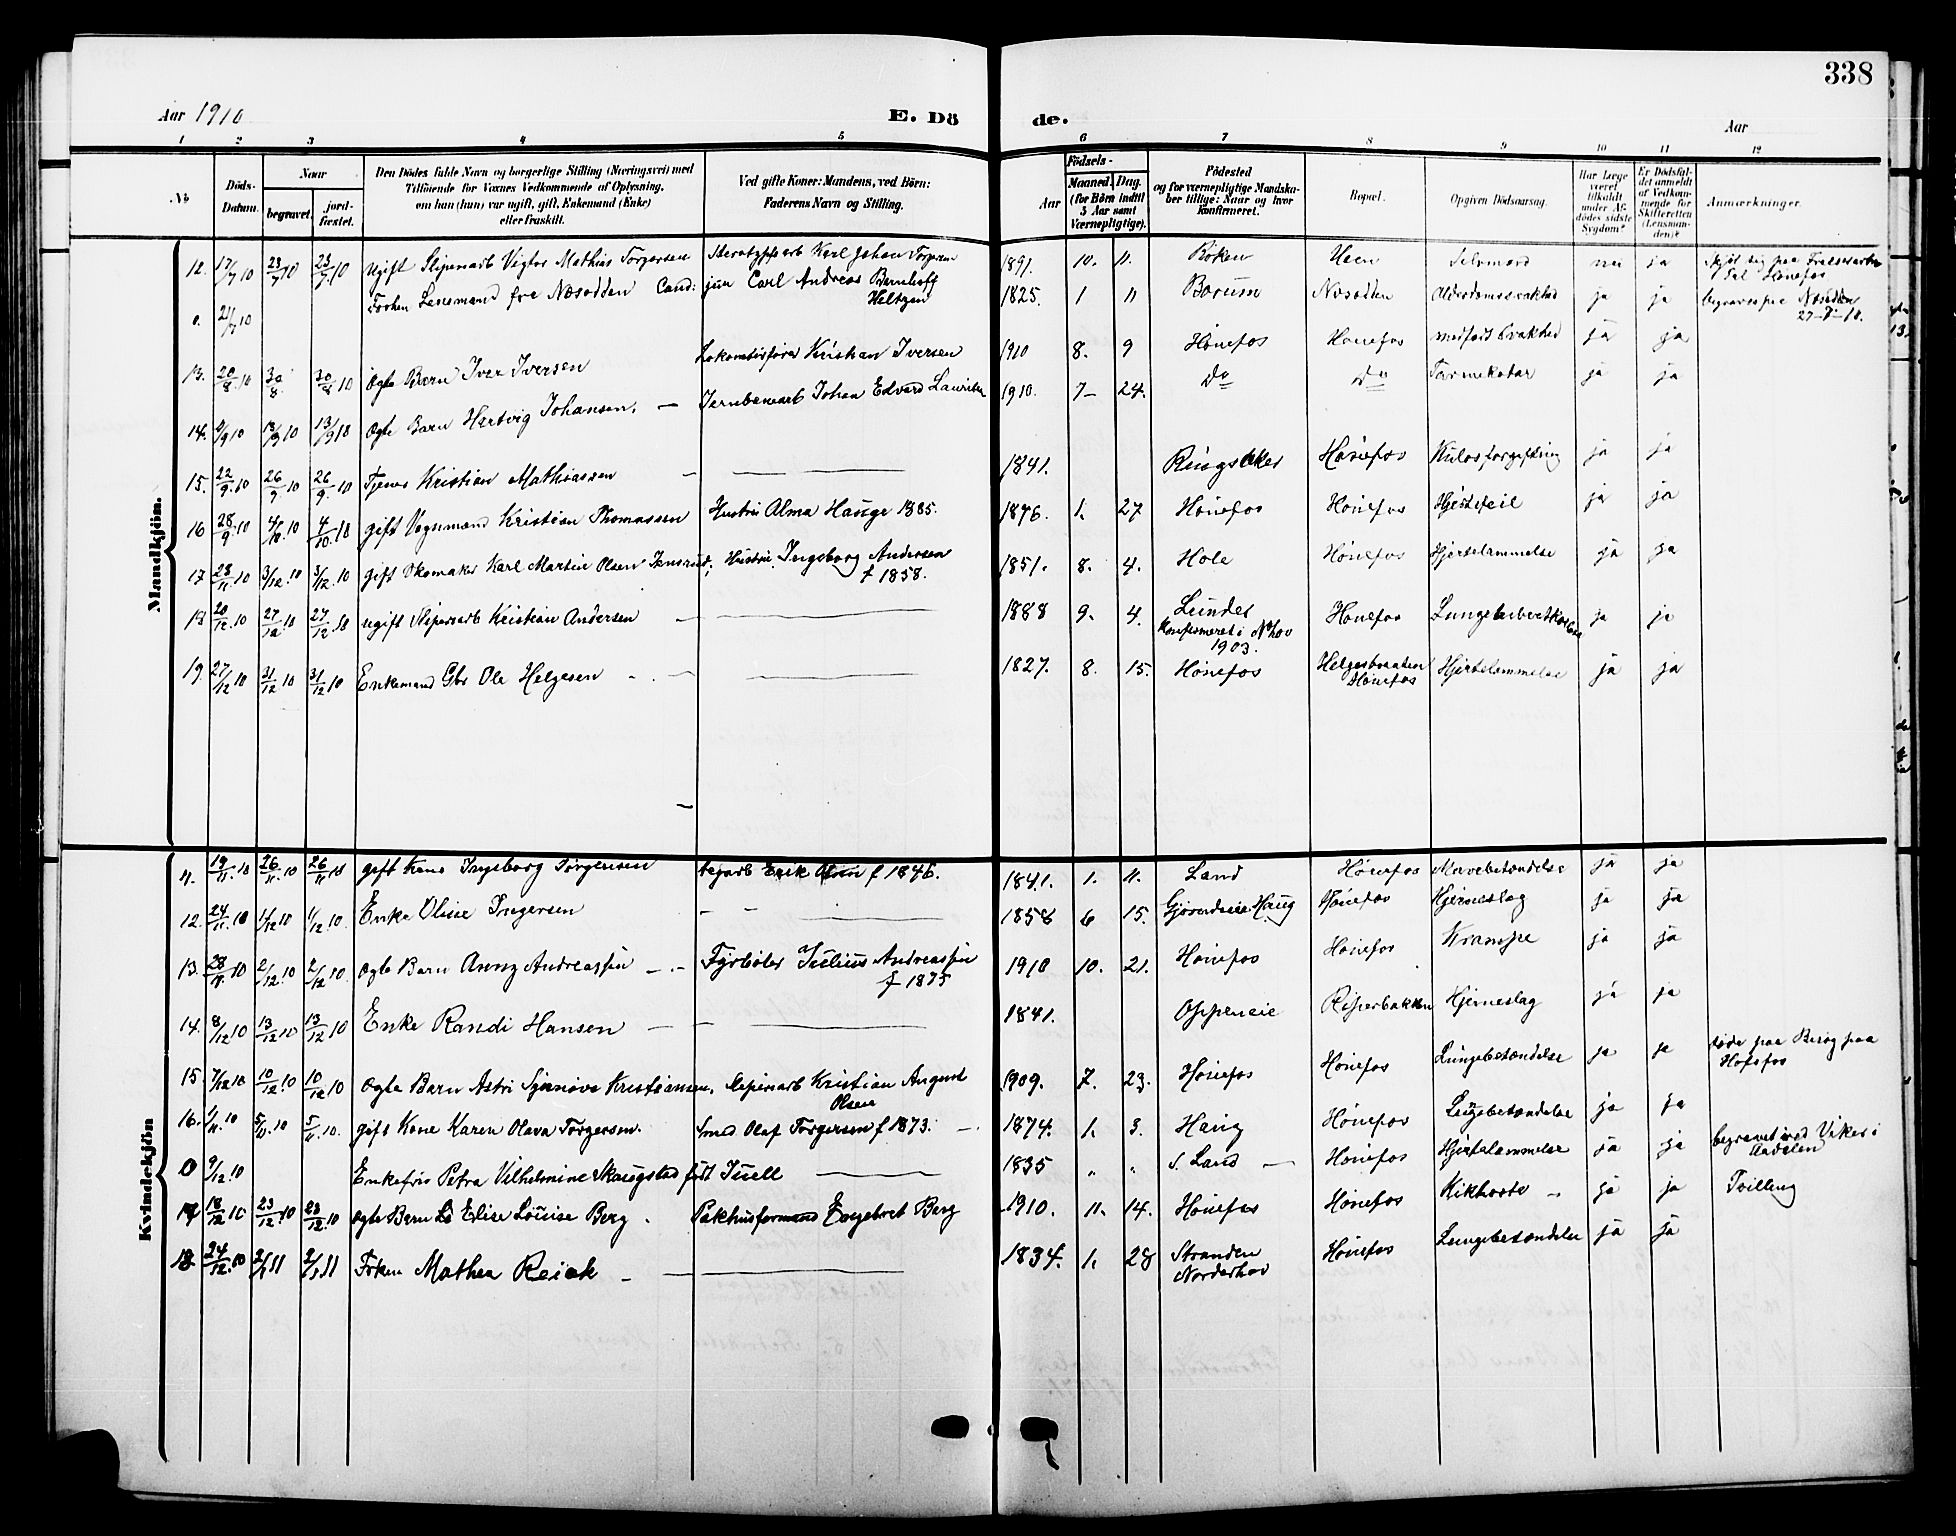 338
Aar 1910 E. Dö de. Aar
1 2 3 4 5 6 7 8 9 10 11 12
No
Döds-Datum.
Naar
begravet.
jord-fæstet.
Den Dödes fulde Navn og borgerlige Stilling (Næringsvei) med
Tilföiende for Voxnes Vedkommende af Oplysning,
om han (hun) var ugift, gift, Enkemand (Enke)
eller fraskilt.
Ved gifte Koner: Mandens, ved Börn:
Faderens Navn og Stilling.
Födsels-
Aar
Maaned. Dag.
(for Börn indtil
5 Aar samt
Værnepligtige).
Födested
og for værnepligtige Mandska-
ber tillige: Naar og hvor
konfirmeret.
Bopæl.
Opgiven Dödsaarsag.
Har Læge
været
tilkaldt
under Af-
dödes sidste
Sygdom?
Er Dödsfal-
det anmeldt
af Vedkom-
mende for
Skifteretten
(Lensman-
den)?
Anmærkninger.
Mandkjön.
12. 17/7 10 23/7 10 23/7 10 ugift Slipenarb Vigtor Mathias Torgersen Karl Johan 1891. 10. 11. Röken Heen Selvmord nei ja Skjöt sig paa Hönefos
0. 21/7 10 Forhen Lensmand fra Næsodden Cand: jur Carl Andreas Barnhoff Heltzen 1825. 1 11 Borum Næsodden Alderdomssvakhed ja ja begraves paa Næsodden 27-7-10.
13. 20/8 10 30/8 30/8 10 Ægte Barn Iver Iversen Lokomotivförer Kristian Iversen 1910 8. 9 Hönefos Hönefos medfödt Svakhed ja ja
14. /9 10 13/9 10 13/9 10 Ægte Barn Hartvig Johansen. — Jernbanearb Johan Edvard Lauritsen 1910. 7- 24. Do Do Tarmekatar ja ja
15. 22/9 10 26/9 10 26/9 10 Tjener Kristian Mathiassen — 1841. Ringsaker Hönefos Kulosforgiftning ja ja
16 28/9 10 4/10 10 4/10 10 gift Vognmand Kristian Thomassen Hustru Alma Hauge 1885. 1876. 1. 27 Hönefos Hönefos Hjertefeil ja ja
17 28/11 10 3/12 10 3/12 10 gift Skomaker Karl Martin Olsen Jensrud; Hustru Ingeborg Andersen f 1858. 1851. 8. 4. Hole Hönefos Hjertelammelse ja ja
18 20/12 10 27/12 10 27/12 10 ugift Slipenarb Kristian Andersen — 1888 9. 4. Lunder Konfirmeret i Nhov 1903. Hönefos ja ja
19. 27/12 10 31/12 10 31/12 10 Enkemand Gbr Ole Helgesen — 1827. 8. 15. Hönefos Helgesbraaten Hönefos Hjertelammelse ja ja
Kvindekjön
11. 19/11 10 26/11 10 26/11 10 gift Kone Ingeborg Jörgensen Erik f 1846. 1841. 1. 11. Land Hönefos Mavebetændelse ja ja
12. 24/11 10 1/12 10 1/12 10 Enke Oline Ingersen — 1858 6 15. Haug Hönefos Hjerneslag ja ja
13. 28/11 10 2/12 10 2/12 10 Ægte Barn Anny Andreassen — Fyrböter Julius Andreassen f 1875 1910 10. 21. Hönefos Hönefos Krampe ja ja
14. 8/12 10 13/12 10 13/12 10 Enke Randi Hansen — 1841. Oppeneie Ripperbakken Hjerneslag ja ja
15. 7/12 10 10/12 10 10/12 10 Ægte Barn Astri Synnöve Kristiansen. Slipenarb Kristian August Olsen 1909. 7. 23. Hönefos Hönefos Lungebetændelse ja ja döde paa Besög paa Hofsfos
16. 1/11 10 5/11 10 5/11 10. gift Kone Karen Olava Torgersen. Smed Olaf Torgersen f 1873. — 1874. 1. 3. Haug Hönefos Lungebetændelse ja ja
0 9/12 10 Enkefru Petra Vilhelmine Skaugstad födt Juell — 1835 " " S. Land — Hönefos Hjertelammelse ja ja begravet ved Viker i Aadalen
17 18/12 10 23/12 10 23/12 10 Ægte Barn Elise Louise Berg. Pakhusformand Engebret Berg 1910. 11. 14. Hönefos Hönefos Kikhoste ja ja Tvilling
18. 24/12 10 2/1 11 2/1 11 Fröken Mathea Reiek — 1834. 1. 28 Stranden Norderhov Hönefos Lungebetændelse ja ja